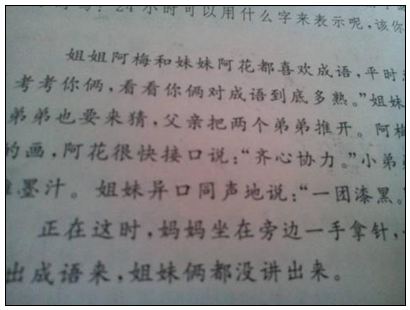 24小时可以用什么字来表示呢，该你
姐姐阿梅和妹妹阿花都喜欢成语，平时
考考你俩，看看你俩对成语到底多熟。”姐妹
弟弟也要来猜，父亲把两个弟弟推开。阿梅
的画，阿花很快接口说：“齐心协力。”小弟
墨汁。姐妹异口同声地说：“一团漆黑。
正在这时，妈妈坐在旁边一手拿针，
出成语来，姐妹俩都没讲出来。